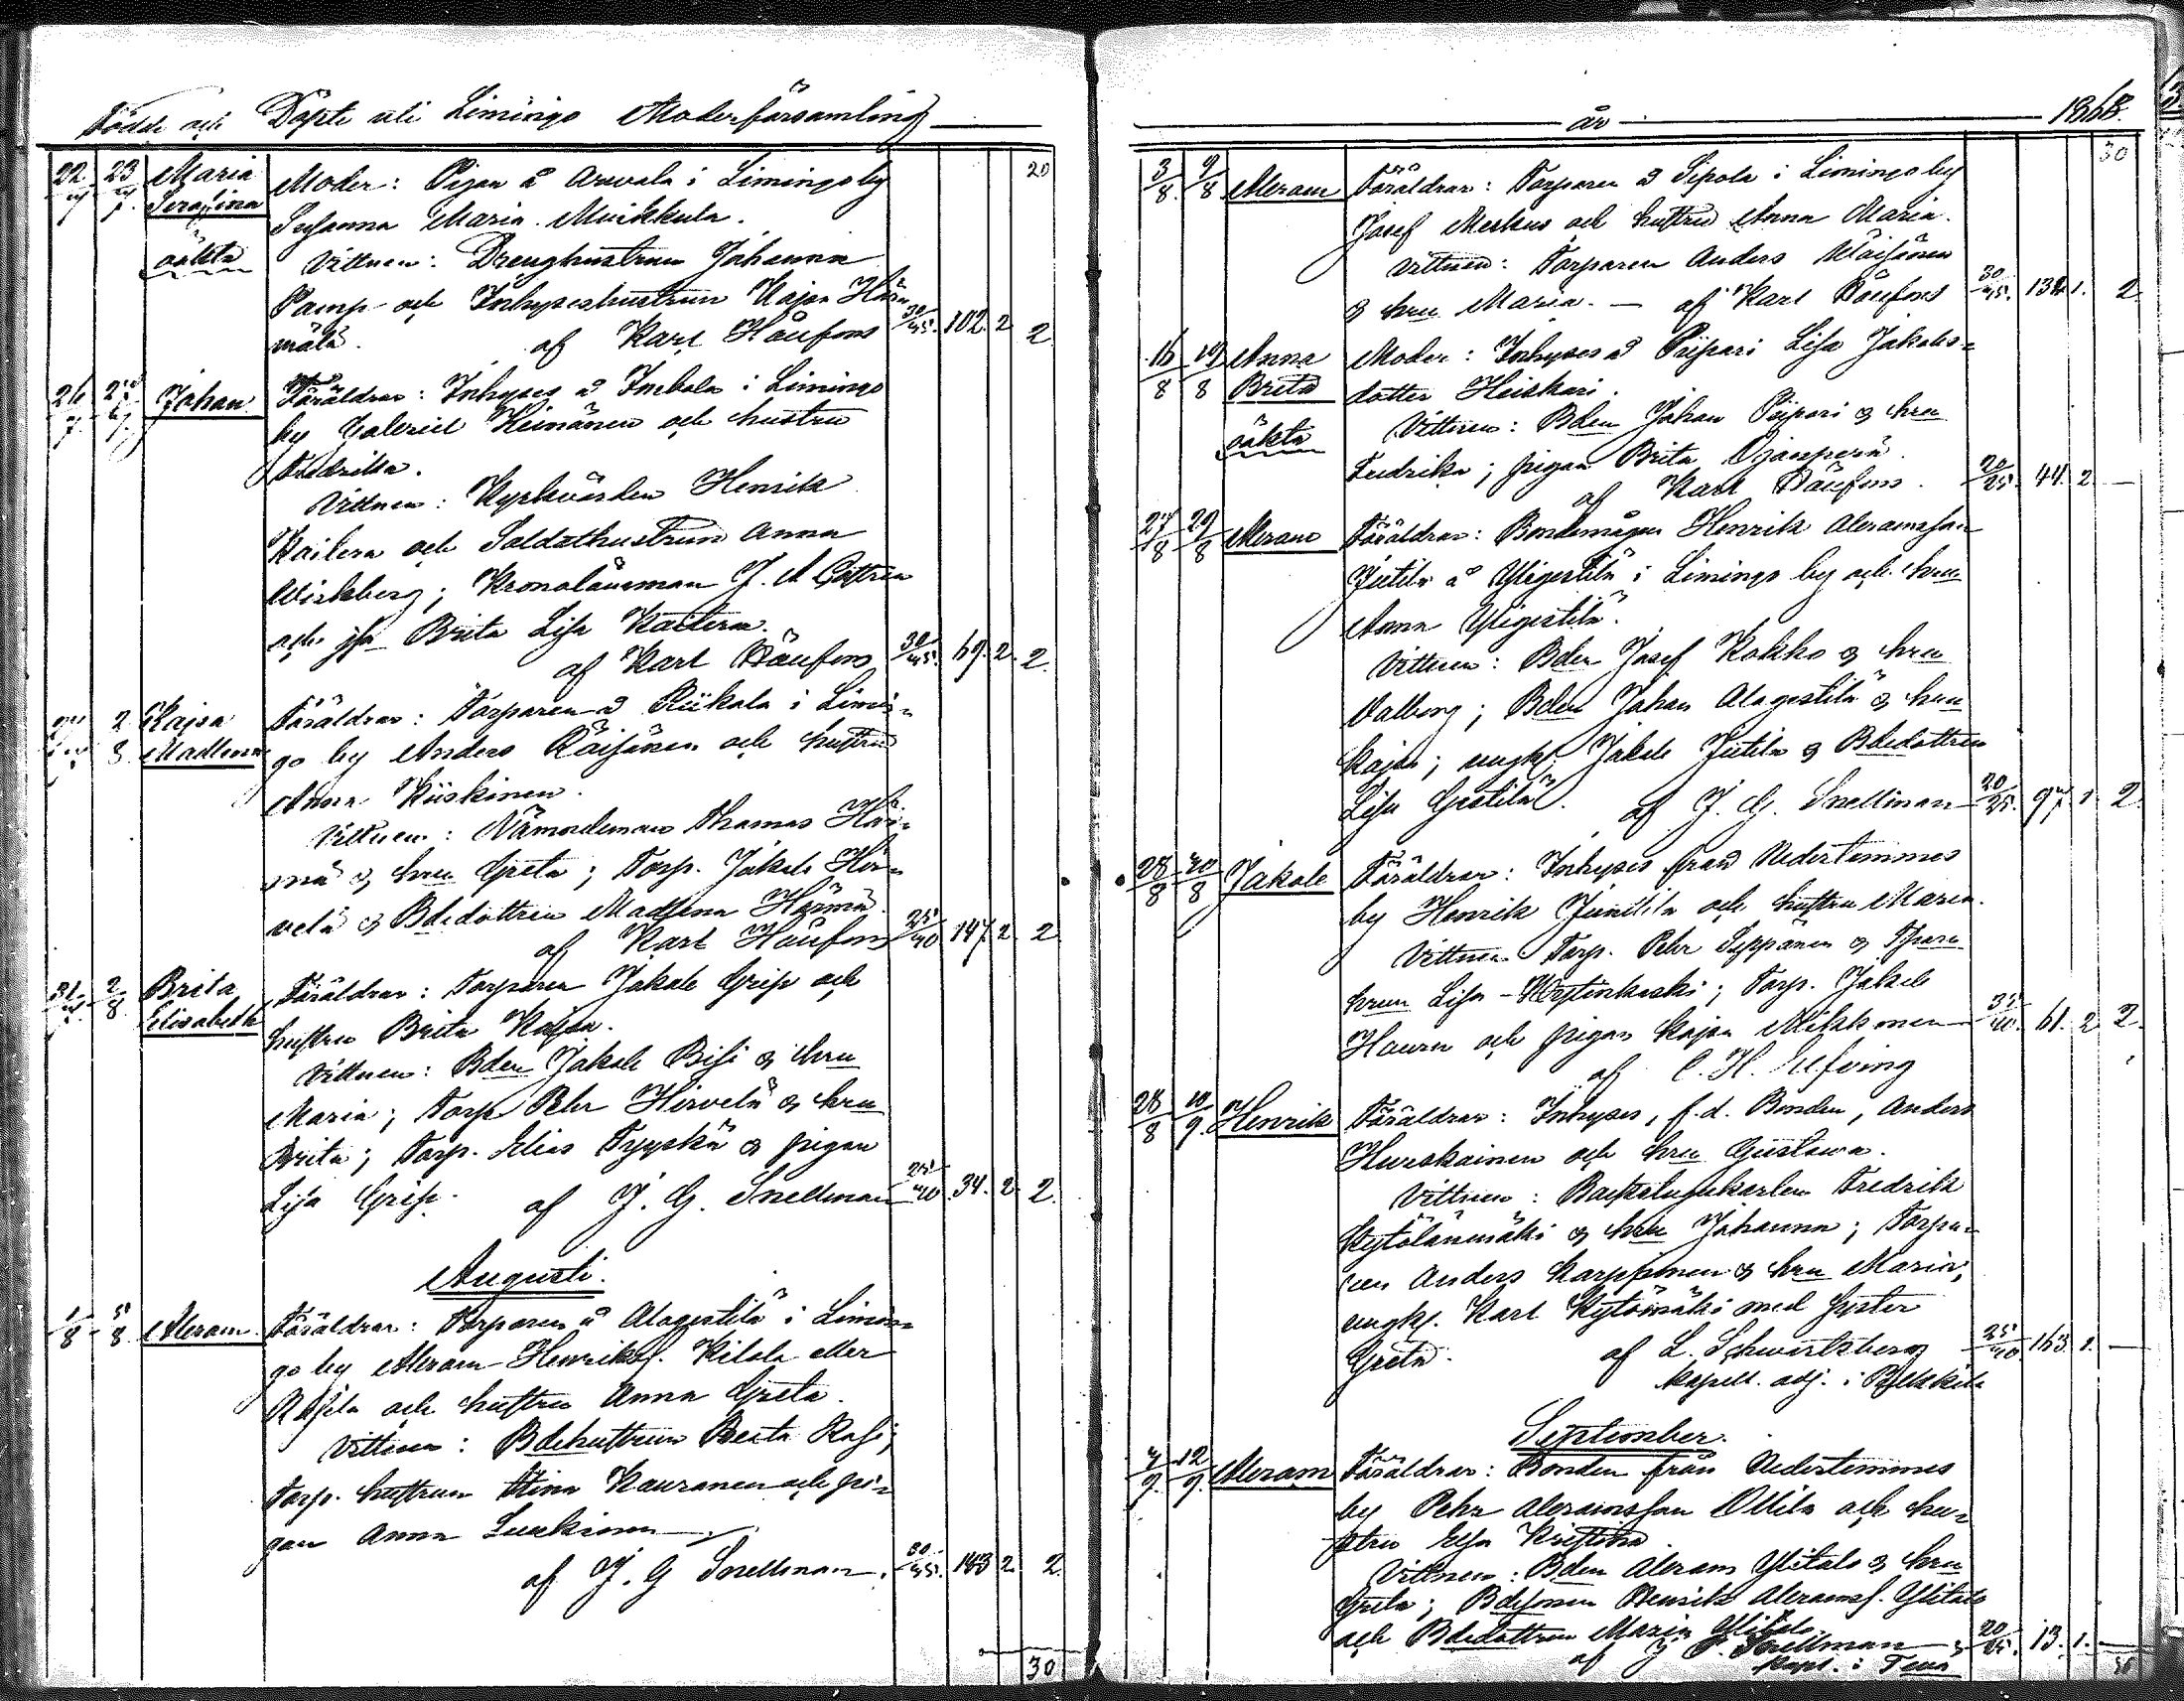 Födde och Döpte uti Limingo Moderförsamling
22/7 23/7 Maria Moder: Pigan å Arvola i Limingo by
Serafina Susanna Maria Muikkula.
oäkta Vittnen: Drenghustrun Johanna
Pamp och Inhyseshustrun Kajsa Här-
mälä. af Karl 30/35. 102. 2 2
26/7 27/7 Johan Föräldrar: Inhyses å Inkala i Limingo
by Gabriel Heinänen och hustru
Fredrika.
Vittnen: Kyrkvärden Henrik
Kailera och Soldathustrun Anna
Wirkberg; Kronolänsman J. A.
och jfr Brita Lisa
af Karl 30/35. 69. 2. 2.
2/8 Kajsa Föräldrar: Torparen å Riikola i Limin-
Madlena go by Anders Räisänen och hustru
Anna Kiiskinen.
Vittnen: Nämndeman Thomas Här-
mä & hru Greta; Torp. Jakob Hir-
velä & Bdedottren Madlena Härmä.
af Karl 25/40 147. 2 2
31/7 2/8 Brita Föräldrar: Torparen Jakob Grip och
Elisabeth hustru Brita Kajsa.
Vittnen: Bden Jakob Bisi & hru
Maria; Torp Pehr Hirvelä & hru
Brita; Torp. Elias Tyyskä & pigan
Lisa Grip. af J. G. Snellman 25/40. 34. 2. 2.
Augusti.
1/8 5/8 Abram Föräldrar: Torparen å Alagestilä i Limin-
go by Abram Henrikss. Kilola eller
och hustru Anna Greta.
Vittnen: Bdehustrun Beata Rasi;
Torp. hustrun Stina Kauranen och pi-
gan Anna
af J. G Snellman. 30/35. 143 2 2
30
år 1868.
3/8. 9/8. Abram Föräldrar: Torparen å Sipola i Limingo by
Josef Meskus och hustru Anna Maria.
Vittnen: Torparen Anders Räisänen
& hru Maria. — af Karl 30/35. 132. 1. 2
16/8 19/8 Anna Moder: Inhyses å Piipari Lisa Jakobs-
Brita dotter Heiskari.
oäkta Vittnen: Bden Johan Piipari & hru
Fredrika; pigan Brita Ojanperä.
af Karl 20/25. 44. 2. —
27/8 29/8 Abram Föräldrar: Bondemågen Henrik Abramsson
Jutila å Yligestilä i Limingo by och hru
Anna Yligestilä.
Vittnen: Bden Josef Kokko & hru
Valborg; Bden Johan Alagestilä & hru
Kajsa; ungk. Jakob Jutila & Bdedottren
Lisa Gestilä. af J. G. Snellman 20/25. 97. 1 2
28/8 30/8 Jakob Föräldrar: Inhyses från Nedertemmes
by Henrik Junttila och hustru Maria.
Vittnen Torp. Pehr Seppänen & Tpare
hrun Lisa Kytinkoski; Torp. Jakob
Hauru och pigan Kajsa Mikkonen 35/40. 61. 2 2.
af C. H. Ulfving
28/8 10/9. Henrik Föräldrar: Inhyses, f.d. Bonden, Anders
Hurskainen och hru Gustava.
Vittnen: Backstugukarlen Fredrik
Kytölänmäki & hru Johanna; Torpa-
ren Anders Karppinen & hru Maria,
ungk. Karl Kytömäki med syster
Greta. af L. Schwartzberg 25/40 163. 1. —
kapell. adj. i
September.
7/9. 12/9. Abram Föräldrar: Bonden från Nedertemmes
by Pehr Abramsson Ollila och hu-
stru Elsa Kristina
Vittnen: Bden Abram Ylitalo & hru
Greta; Bdesonen Henrik Abramss. Ylitalo
och Bdedottren Maria Ylitalo
af J. G. Snellman 20/25. 13. 1. —